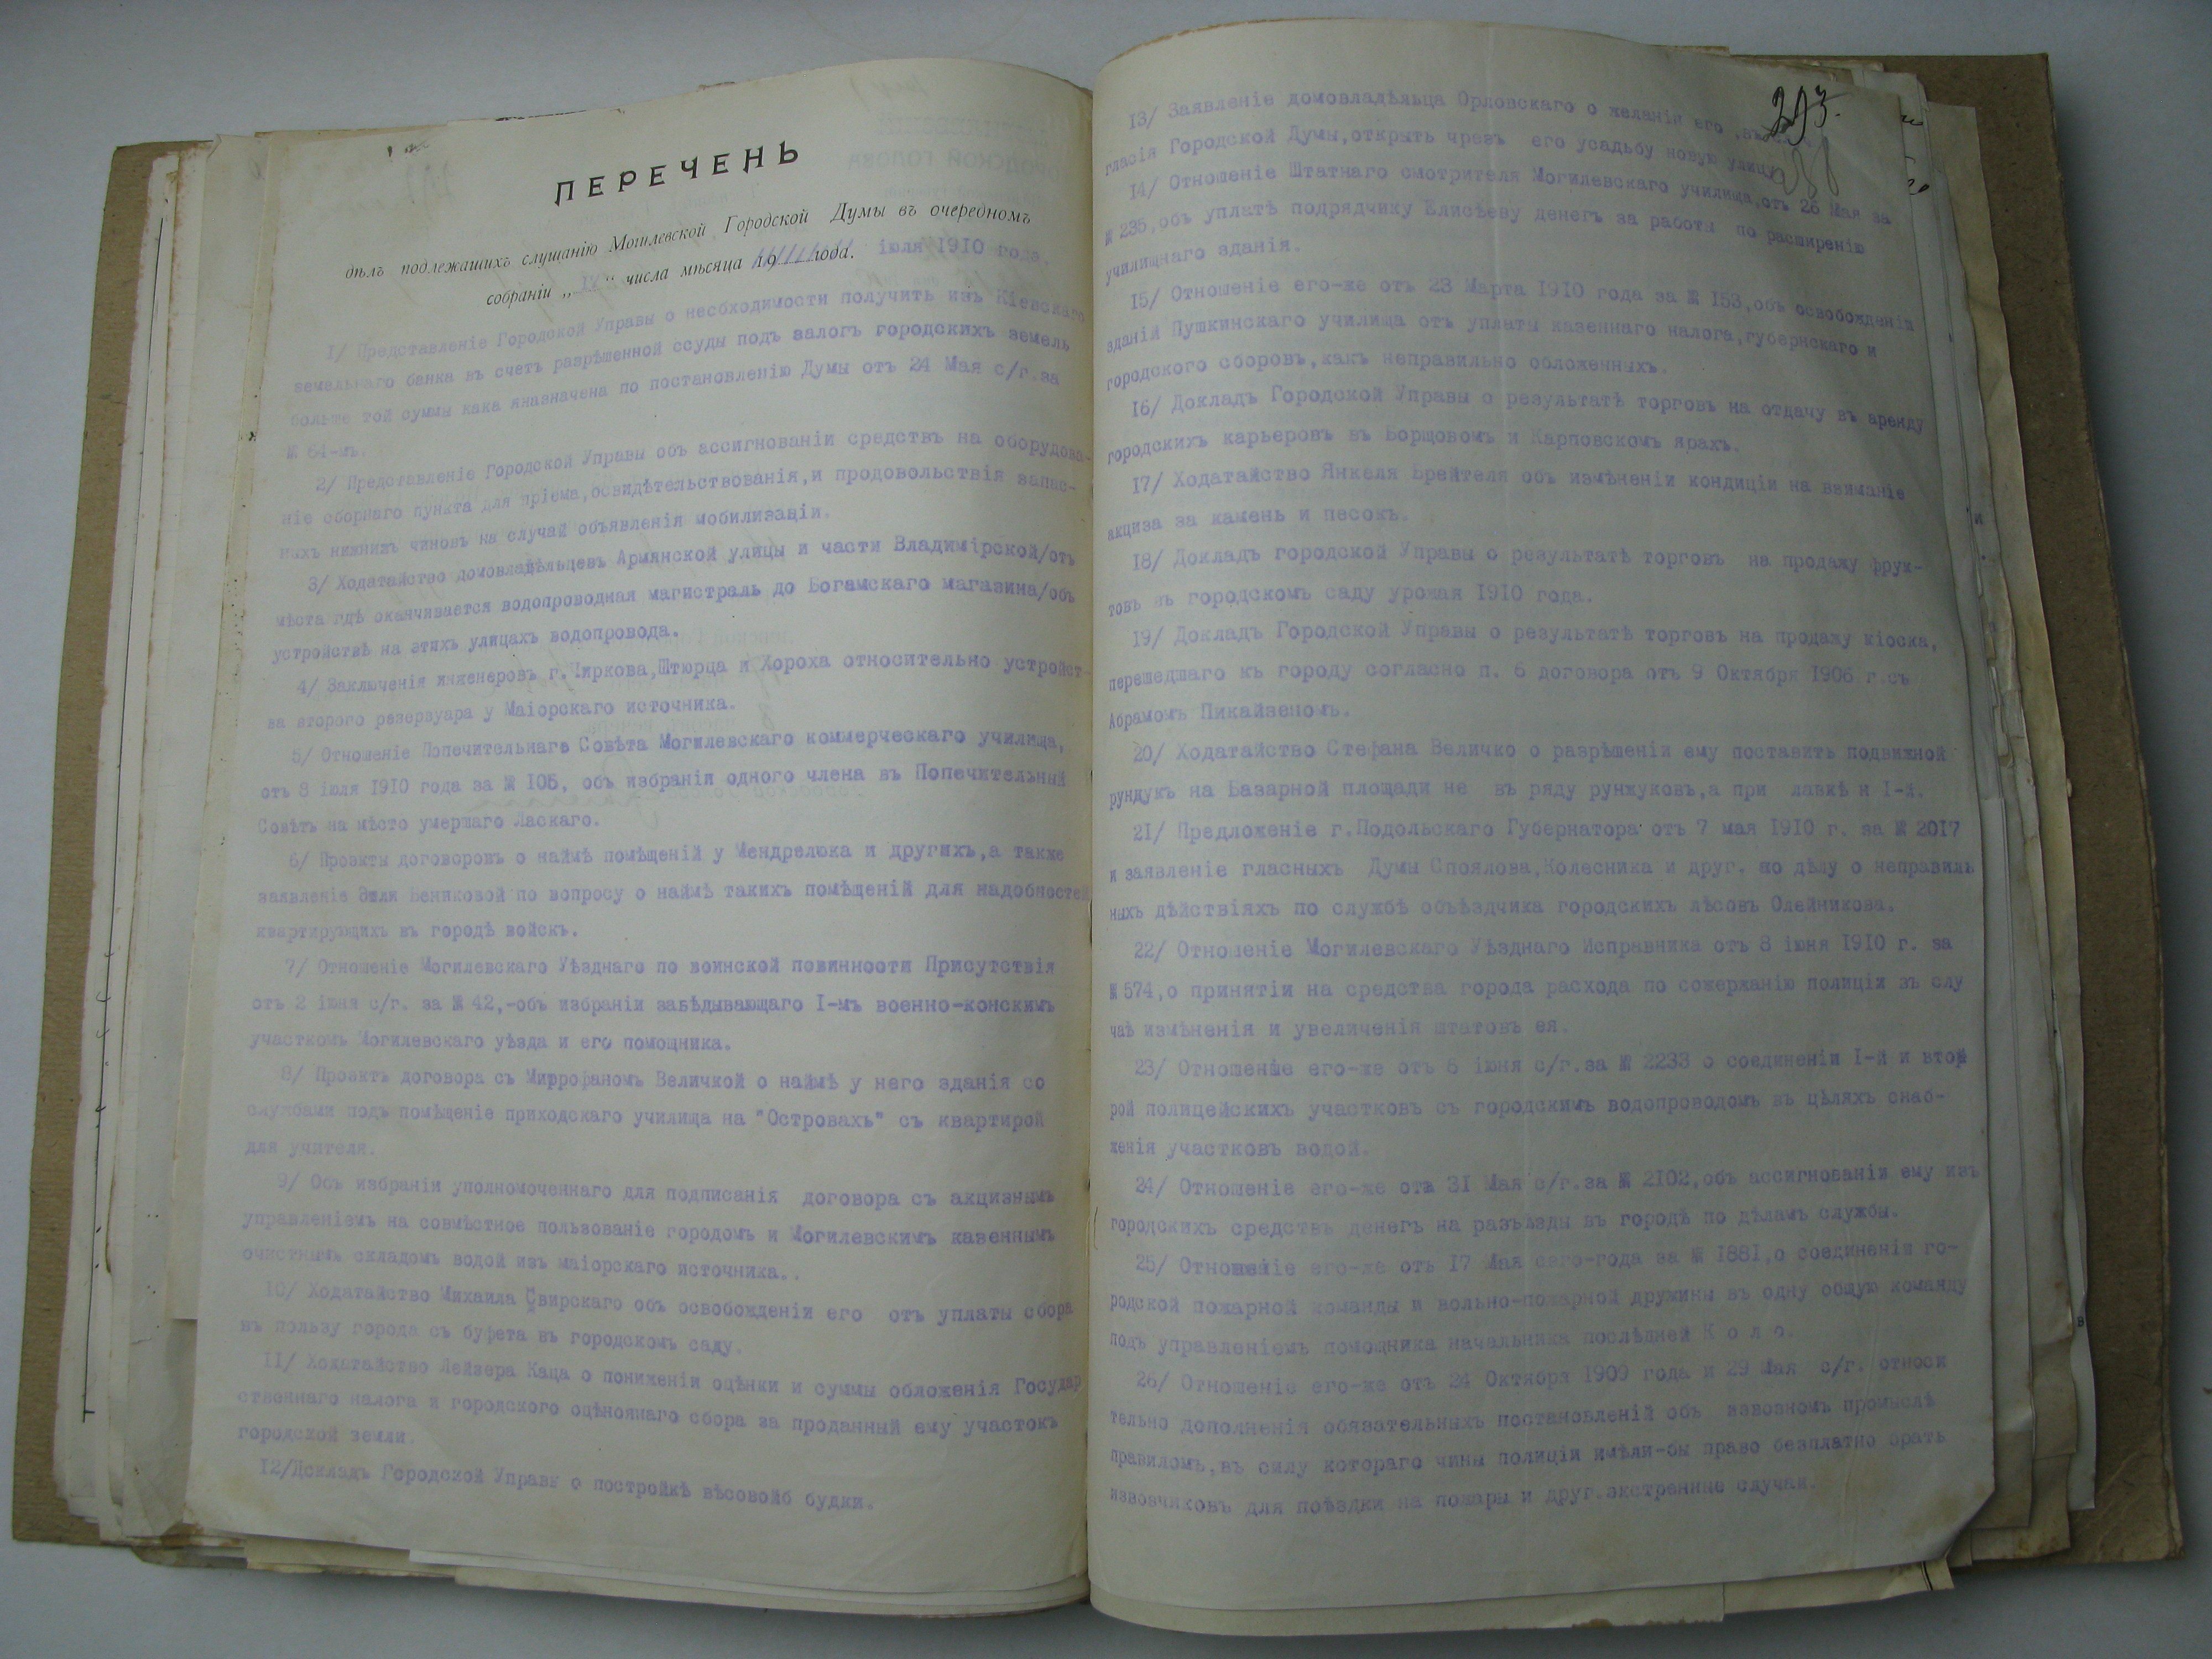 ПЕРЕЧЕНЬ
дѣлъ подлежащихъ слушанію Могилевской Городской Думы въ очередномъ
собраніи „ “ числа мѣсяца 19 года. іюля 1910 года.
1/ Представленіе Городской Управы о необходимости получить изъ Кіевскаго
земельнаго банка въ счетъ разрѣшенной ссуды подъ залогъ городскихъ земель
больше той суммы кака яназначена по постановленію Думы отъ 24 Мая с/г.за
№ 64-мъ.
2/ Представленіе Городской Управы объ ассигнованіи средствъ на оборудова-
ніе сборнаго пункта для пріема,освидѣтельствованія,и продовольствія запас-
ныхъ нижнихъ чиновъ на случай объявленія мобилизаціи.
3/ Ходатайство домовладѣльцевъ Армянской улицы и части Владимірской/отъ
мѣста гдѣ оканчивается водопроводная магистраль до Богамскаго магазина/объ
устройствѣ на этихъ улицахъ водопровода.
4/ Заключенія инженеровъ г.Чиркова,Штюрца и Хороха относительно устройст-
ва второго резервуара у Маіорскаго источника.
5/ Отношеніе Попечительнаго Совѣта Могилевскаго коммерческаго училища,
отъ 8 іюля 1910 года за № 106, объ избраніи одного члена въ Попечительный
Совѣтъ на мѣсто умершаго Ласкаго.
6/ Проэкты договоровъ о наймѣ помѣщеній у Мендрелюка и другихъ,а также
заявленіе Эшли Бениковой по вопросу о наймѣ такихъ помѣщеній для надобностей
квартирующихъ въ городѣ войскъ.
7/ Отношеніе Могилевскаго Уѣзднаго по воинской повинности Присутствія
отъ 2 іюня с/г. за № 42,-объ избраніи завѣдывающаго I-мъ военно-конскимъ
участкомъ Могилевскаго уѣзда и его помощника.
8/ Проэктъ договора съ Митрофаномъ Величкой о наймѣ у него зданія со
службами подъ помѣщеніе приходскаго училища на "Островахъ" съ квартирой
для учителя.
9/ Объ избраніи уполномоченнаго для подписанія договора съ акцизнымъ
управленіемъ на совмѣстное пользованіе городомъ и Могилевскимъ казеннымъ
очистнымъ складомъ водой изъ маіорскаго источника..
10/ Ходатайство Михаила Свирскаго объ освобожденіи его отъ уплаты сбора
въ пользу города съ буфета въ городскомъ саду.
11/ Ходатайство Лейзера Каца о пониженіи оцѣнки и суммы обложенія Государ
ственнаго налога и городского оцѣнояаго сбора за проданный ему участокъ
городской земли.
12/Докладъ Городской Управы о постройкѣ вѣсовойб будки.
293.
288
13/ Заявленіе домовладѣльца Орловскаго о желаніи его ,
гласія Городской Думы,открыть чрезъ его усадьбу новую улицу
14/ Отношеніе Штатнаго смотрителя Могилевскаго училища,отъ 26 Мая за
№ 235,объ уплатѣ подрядчику Елисѣеву денегъ за работы по расширенію
училищнаго зданія.
15/ Отношеніе его-же отъ 23 Марта 1910 года за № 153,объ освобожденіи
зданій Пушкинскаго училища отъ уплаты казеннаго налога,губернскаго и
городского сборовъ,какъ неправильно обложенныхъ.
16/ Докладъ Городской Управы о результатѣ торговъ на отдачу въ аренду
городскихъ карьеровъ въ Борщовомъ и Карповскомъ ярахъ.
17/ Ходатайство Янкеля Брейтеля объ измѣненіи кондиціи на взиманіе
акциза за камень и песокъ.
18/ Докладъ городской Управы о результатѣ торговъ на продажу фрук-
товъ въ городскомъ саду урожая 1910 года.
19/ Докладъ Городской Управы о результатѣ торговъ на продажу кіоска,
перешедшаго къ городу согласно п. 6 договора отъ 9 Октября 1906 г.съ
Абрамомъ Пикайзеномъ.
20/ Ходатайство Стефана Величко о разрѣшеніи ему поставить подвижной
рундукъ на Базарной площади не въ ряду рунжуковъ,а при лавкѣ н I-й.
21/ Предложеніе г.Подольскаго Губернатора отъ 7 мая 1910 г. за № 2017
и заявленіе гласныхъ Думы Споялова,Колесника и друг. по дѣлу о неправиль
ныхъ дѣйствіяхъ по службѣ объѣздчика городскихъ лѣсовъ Олейникова.
22/ Отношеніе Могилевскаго Уѣзднаго Исправника отъ 8 іюня 1910 г. за
№ 574,о принятіи на средства города расхода по сожержанію полиціи въ слу
чаѣ измѣненія и увеличенія штатовъ ея.
23/ Отношеніе его-же отъ 6 іюня с/г.за № 2233 о соединеніи I-й и втой
рой полицейскихъ участковъ съ городскимъ водопроводомъ въ цѣляхъ снаб-
женія участковъ водой.
24/ Отношеніе его-же отъ 31 Мая с/г.за № 2102,объ ассигнованіи ему изъ
городскихъ средствъ денегъ на разъѣзды въ городѣ по дѣламъ службы.
25/ Отношеніе его-же отъ 17 Мая сего-года за № 1881,о соединеніи го-
родской пожарной команды и вольно-пожарной дружины въ одну общую команду
подъ управленіемъ помощника начальника послѣдней К о л о.
26/ Отношеніе его-же отъ 24 Октября 1909 года и 29 Мая с/г. относи
тельно дополненія обязательныхъ постановленій объ извозномъ промыслѣ
правиломъ,въ силу котораго чины полиціи имѣли-бы право безплатно брать
извозчиковъ для поѣздки на пожары и друг.экстренные случаи.